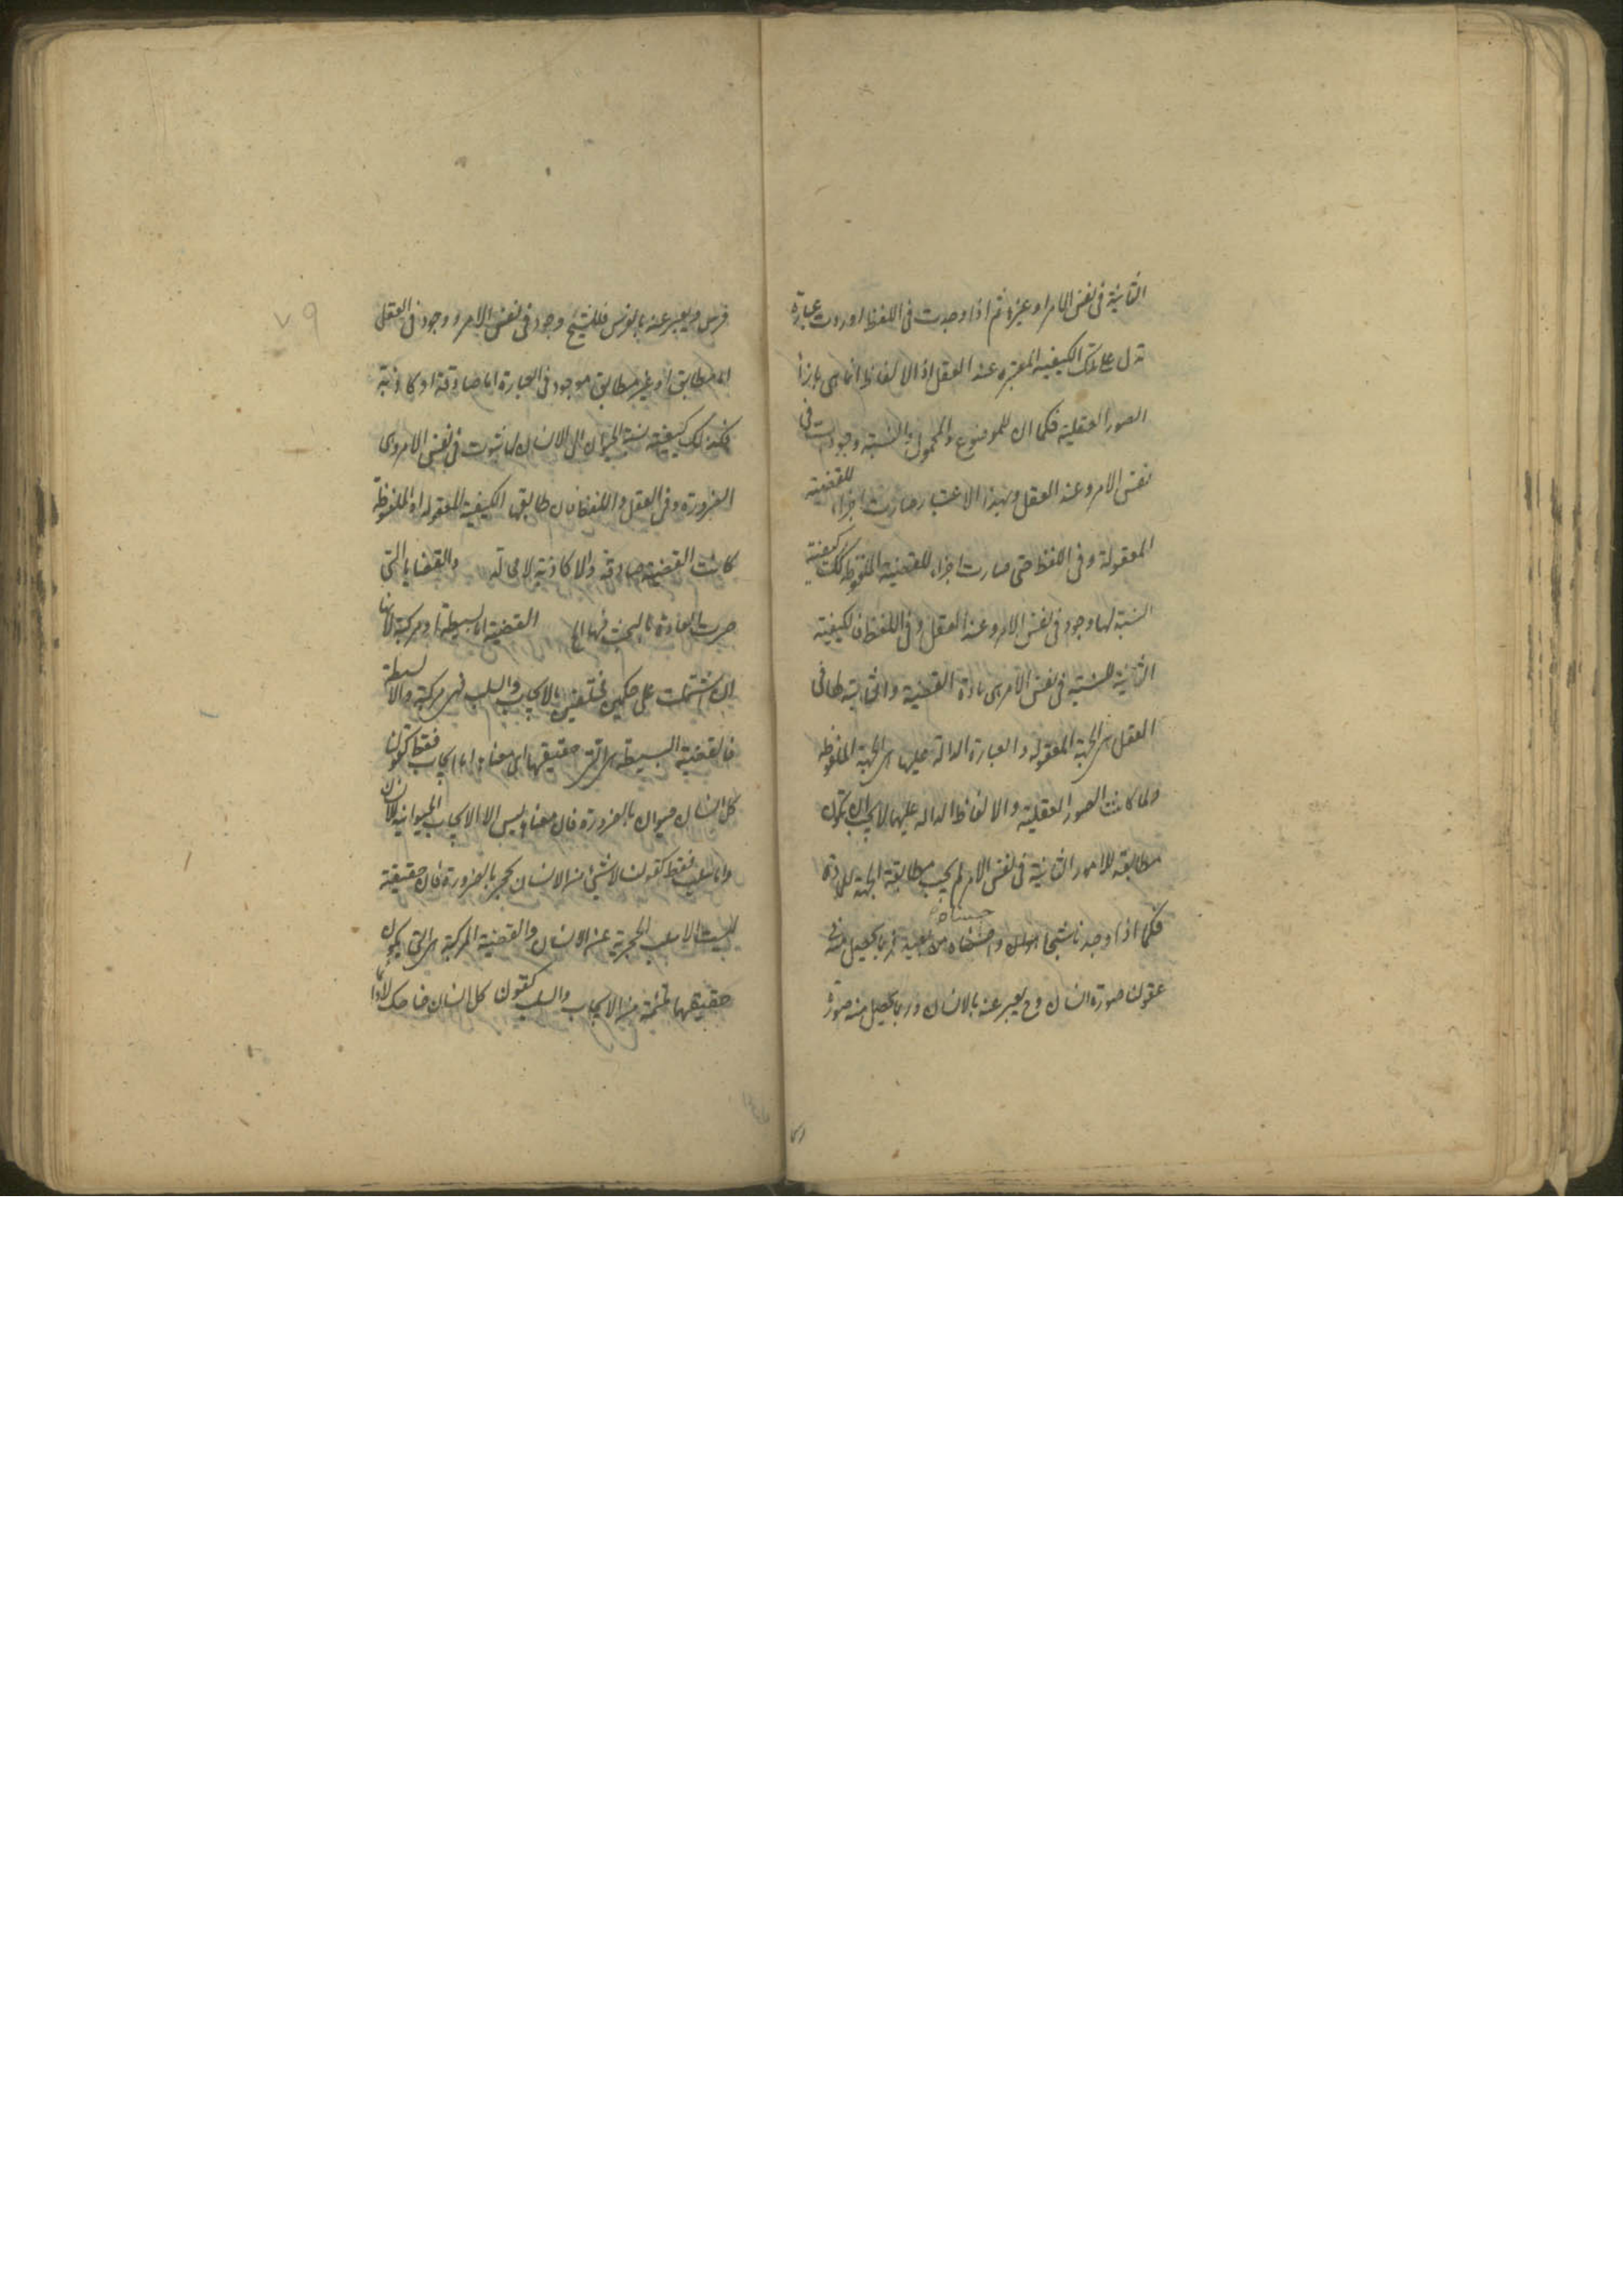 الثابتة فى نفس الامر او غيره ثم اذا وجدت فى اللفظ اوردت عبارة
تدل على تلك الكيفية المعتبرة عند العقل اذ الالفاظ انما هى بازاء
الصور العقلية فكما ان للموضوع والمحمول والنسبة وجودات فى
نفس الامر وعند العقل وبهذا الاعتبار صارت اجزاء للقضية
المعقولة وفى اللفظ حتى صارت اجزاء للقضية الملفوظة كذلك كيفية
النسبة لها وجود فى نفس الامر وعند العقل وفى اللفظ فالكيفية
الثابتة للنسبة فى نفس الامر هى مادة القضية والثابتة لها فى
العقل هى الجهة المعقولة والعبارة الدالة عليها هى الجهة الملفوظة
ولما كانت الصور العقلية والالفاظ الدالة عليها لا يجب ان تكون
مطابقة للامور الثابتة فى نفس الامر لم يجب مطابقة الجهة للمادة
فكما اذا وجدنا شبحا هو انسان واحسسناه من بعيد فربما يحصل منه فى
عقولنا صورة انسان وح يعبر عنه بالانسان وربما يحصل منه صورة
٧٩
فرس ويعبر عنه بالفرس فللشبح وجود فى نفس الامر ووجود فى العقل
اما مطابق او غير مطابق موجود فى العبارة اما صادقة او كاذبة
فكذلك كيفية نسبة الحيوان الى الانسان لها ثبوت فى نفس الامر وهى
الضرورة وفى العقل واللفظ فان طابقها الكيفية المعقولة او الملفوظة
كانت القضية صادقة والا كاذبة لا محالة والقضايا التى
جرت العادة بالبحث فيها الخ القضية اما بسيطة او مركبة لانها
ان اشتملت على حكمين مختلفين بالايجاب والسلب فهى مركبة والا بسيطة
فالقضية البسيطة هى التى حقيقتها اى معناها اما ايجاب فقط كقولنا
كل انسان حيوان بالضرورة فان معناه ليس الا الايجاب الحيوانية للانسان
واما سلب فقط كقولنا لا شئ من الانسان بحجر بالضرورة فان حقيقته
ليست الا سلب الحجرية عن الانسان والقضية المركبة هى التى يكون
حقيقتها ملتئمة من الايجاب والسلب كقولنا كل انسان ضاحك لا دائما